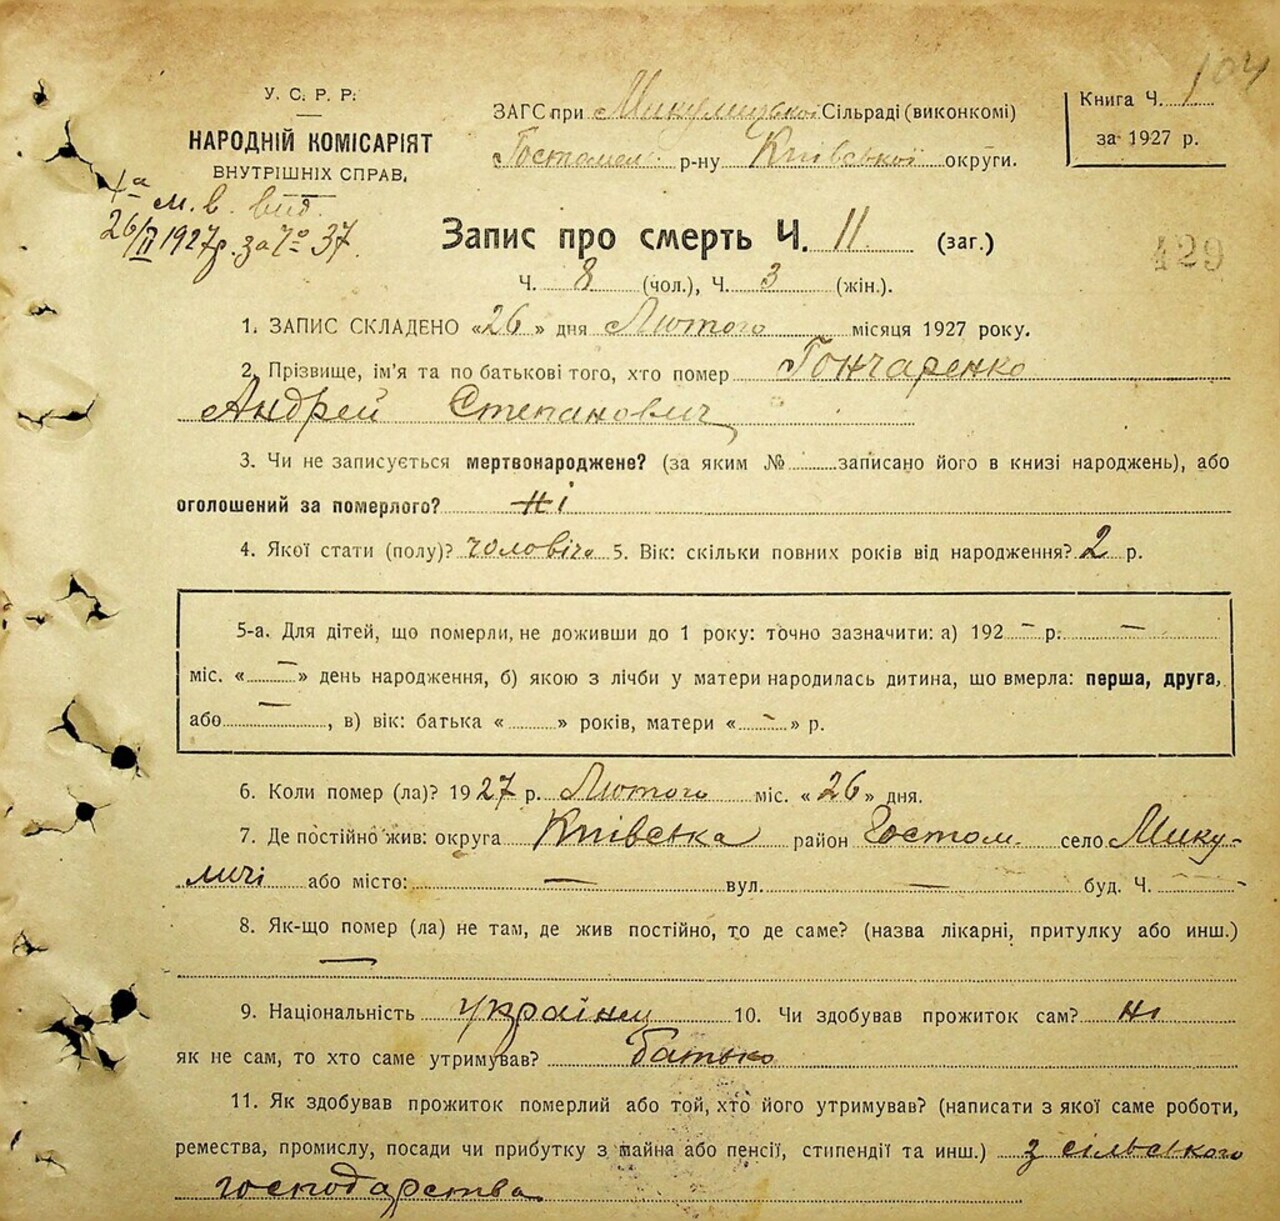 104
У. С. Р. Р.
НАРОДНІЙ КОМІСАРІЯТ
ВНУТРІШНІХ СПРАВ.
ЗАГС при Микулицької Сільраді (виконкомі)
Гостомел. р-ну Київської округи.
Книга Ч. 1
за 1927 р.
м. в. вид.
26/II 1927 р. за № 37.
Запис про смерть Ч. 11 (заг.)
429
Ч. 8 (чол.), Ч. 3 (жін.).
1. ЗАПИС СКЛАДЕНО «26» дня Лютого місяця 1927 року.
2. Прізвище, ім'я та по батькові того, хто помер Гончаренко
Андрей Степанович
3. Чи не записується мертвонароджене? (за яким № записано його в книзі народжень), або
оголошений за померлого? Ні
4. Якої стати (полу)? чоловіч. 5. Вік: скільки повних років від народження? 2 р.
5-а. Для дітей, що померли, не доживши до 1 року: точно зазначити: а) 192 – р. –
міс. « – » день народження, б) якою з лічби у матери народилась дитина, що вмерла: перша, друга,
або – , в) вік: батька « » років, матери « – » р.
6. Коли помер (ла)? 1927 р. Лютого міс. «26» дня.
7. Де постійно жив: округа Київська район Гостом. село Мику-
личі або місто: – вул. – буд. Ч. –
8. Як-що помер (ла) не там, де жив постійно, то де саме? (назва лікарні, притулку або инш.)
–
9. Національність українец 10. Чи здобував прожиток сам? ні
як не сам, то хто саме утримував? батько
11. Як здобував прожиток померлий або той, хто його утримував? (написати з якої саме роботи,
ремества, промислу, посади чи прибутку з майна або пенсії, стипендії та инш.) з сільського
господарства